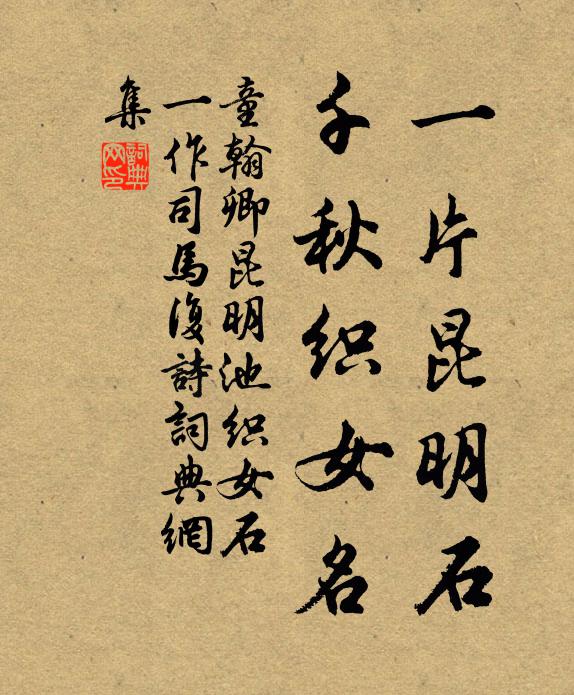 一片昆明石
千秋织女名
童翰卿昆明池织女石
一作司馬復詩詞典網
集
詞典
网印